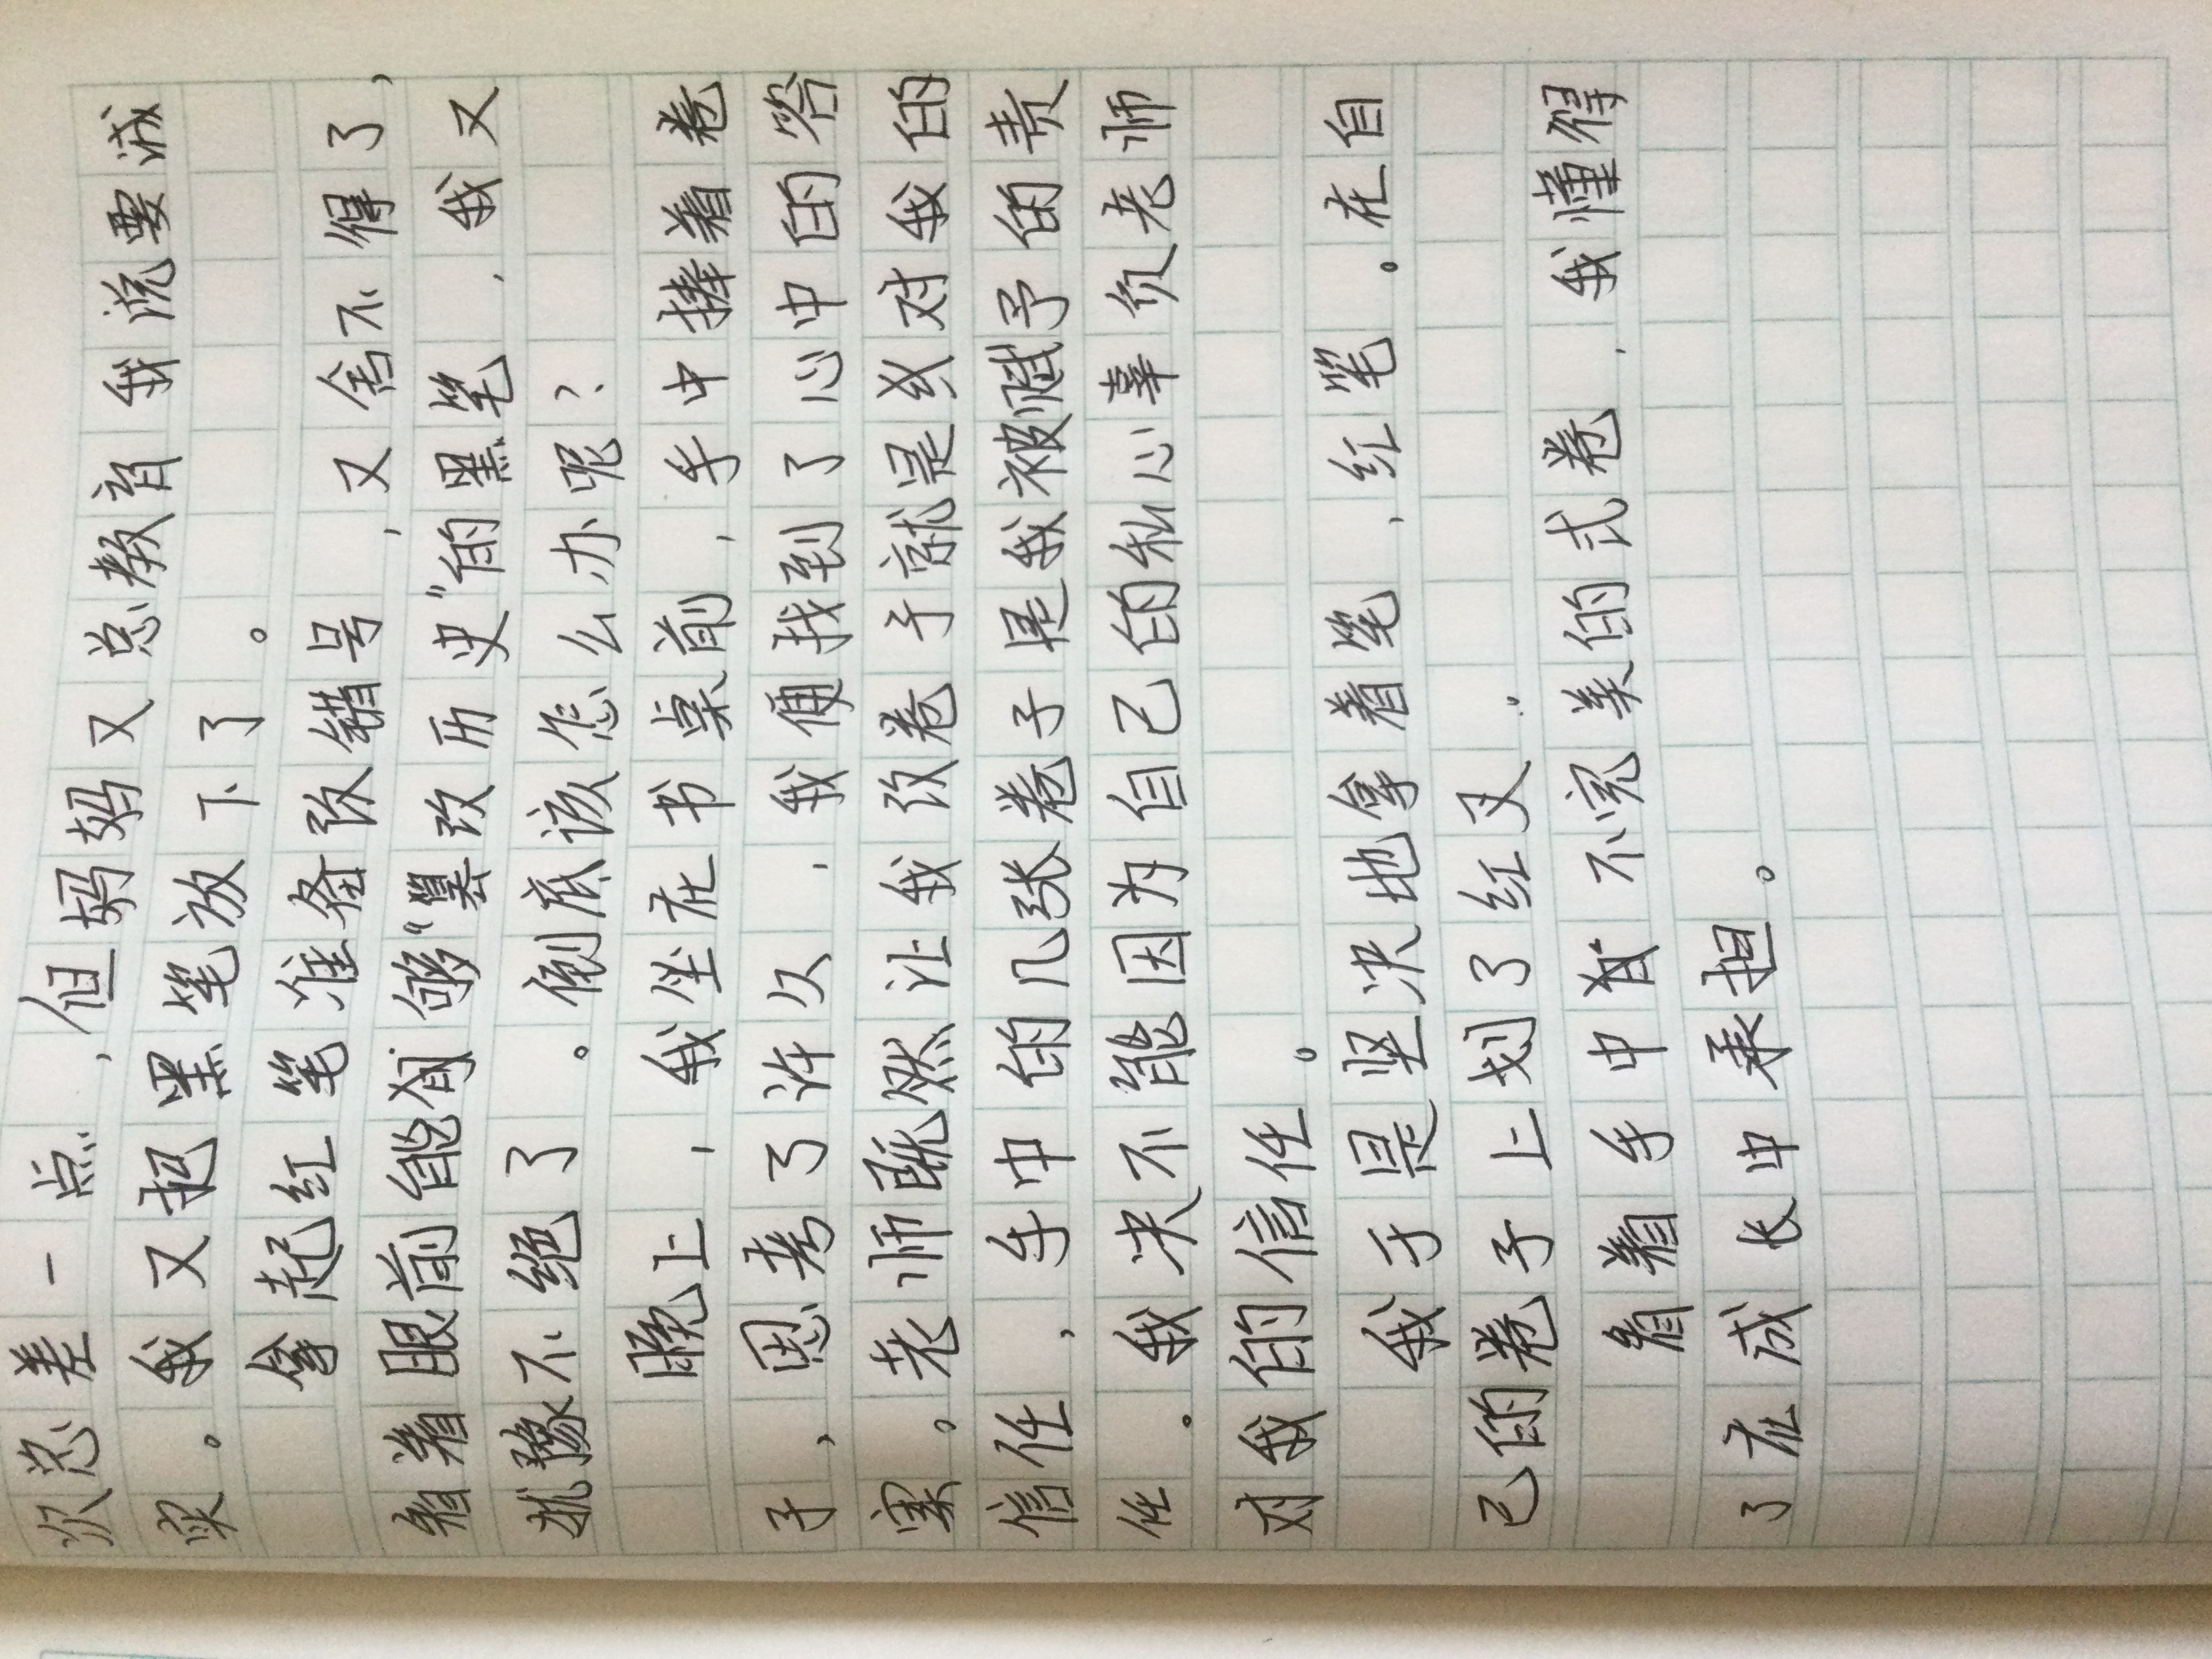 次总差一点,但妈妈又总教育我说要诚
实。我又把黑笔放下了。
拿起红笔准备改错号,又舍不得了,
看着眼前能有够“篡改历史”的黑笔,我又
犹豫不绝了。倒底该怎么办呢?
晚上,我坐在书桌前,手中捧着卷
子,思考了许久,我便找到了心中的答
案。老师既然让我改卷子就是或对我的
信任,手中的几张卷子是我被赋予的责
任。我决不能因为自己的私心辜负老师
对我的信任。
我于是坚决地拿着笔,红笔。在自
己的卷子上划了红叉。
看着手中有不完美的试卷,我懂得
了在成长中承担。